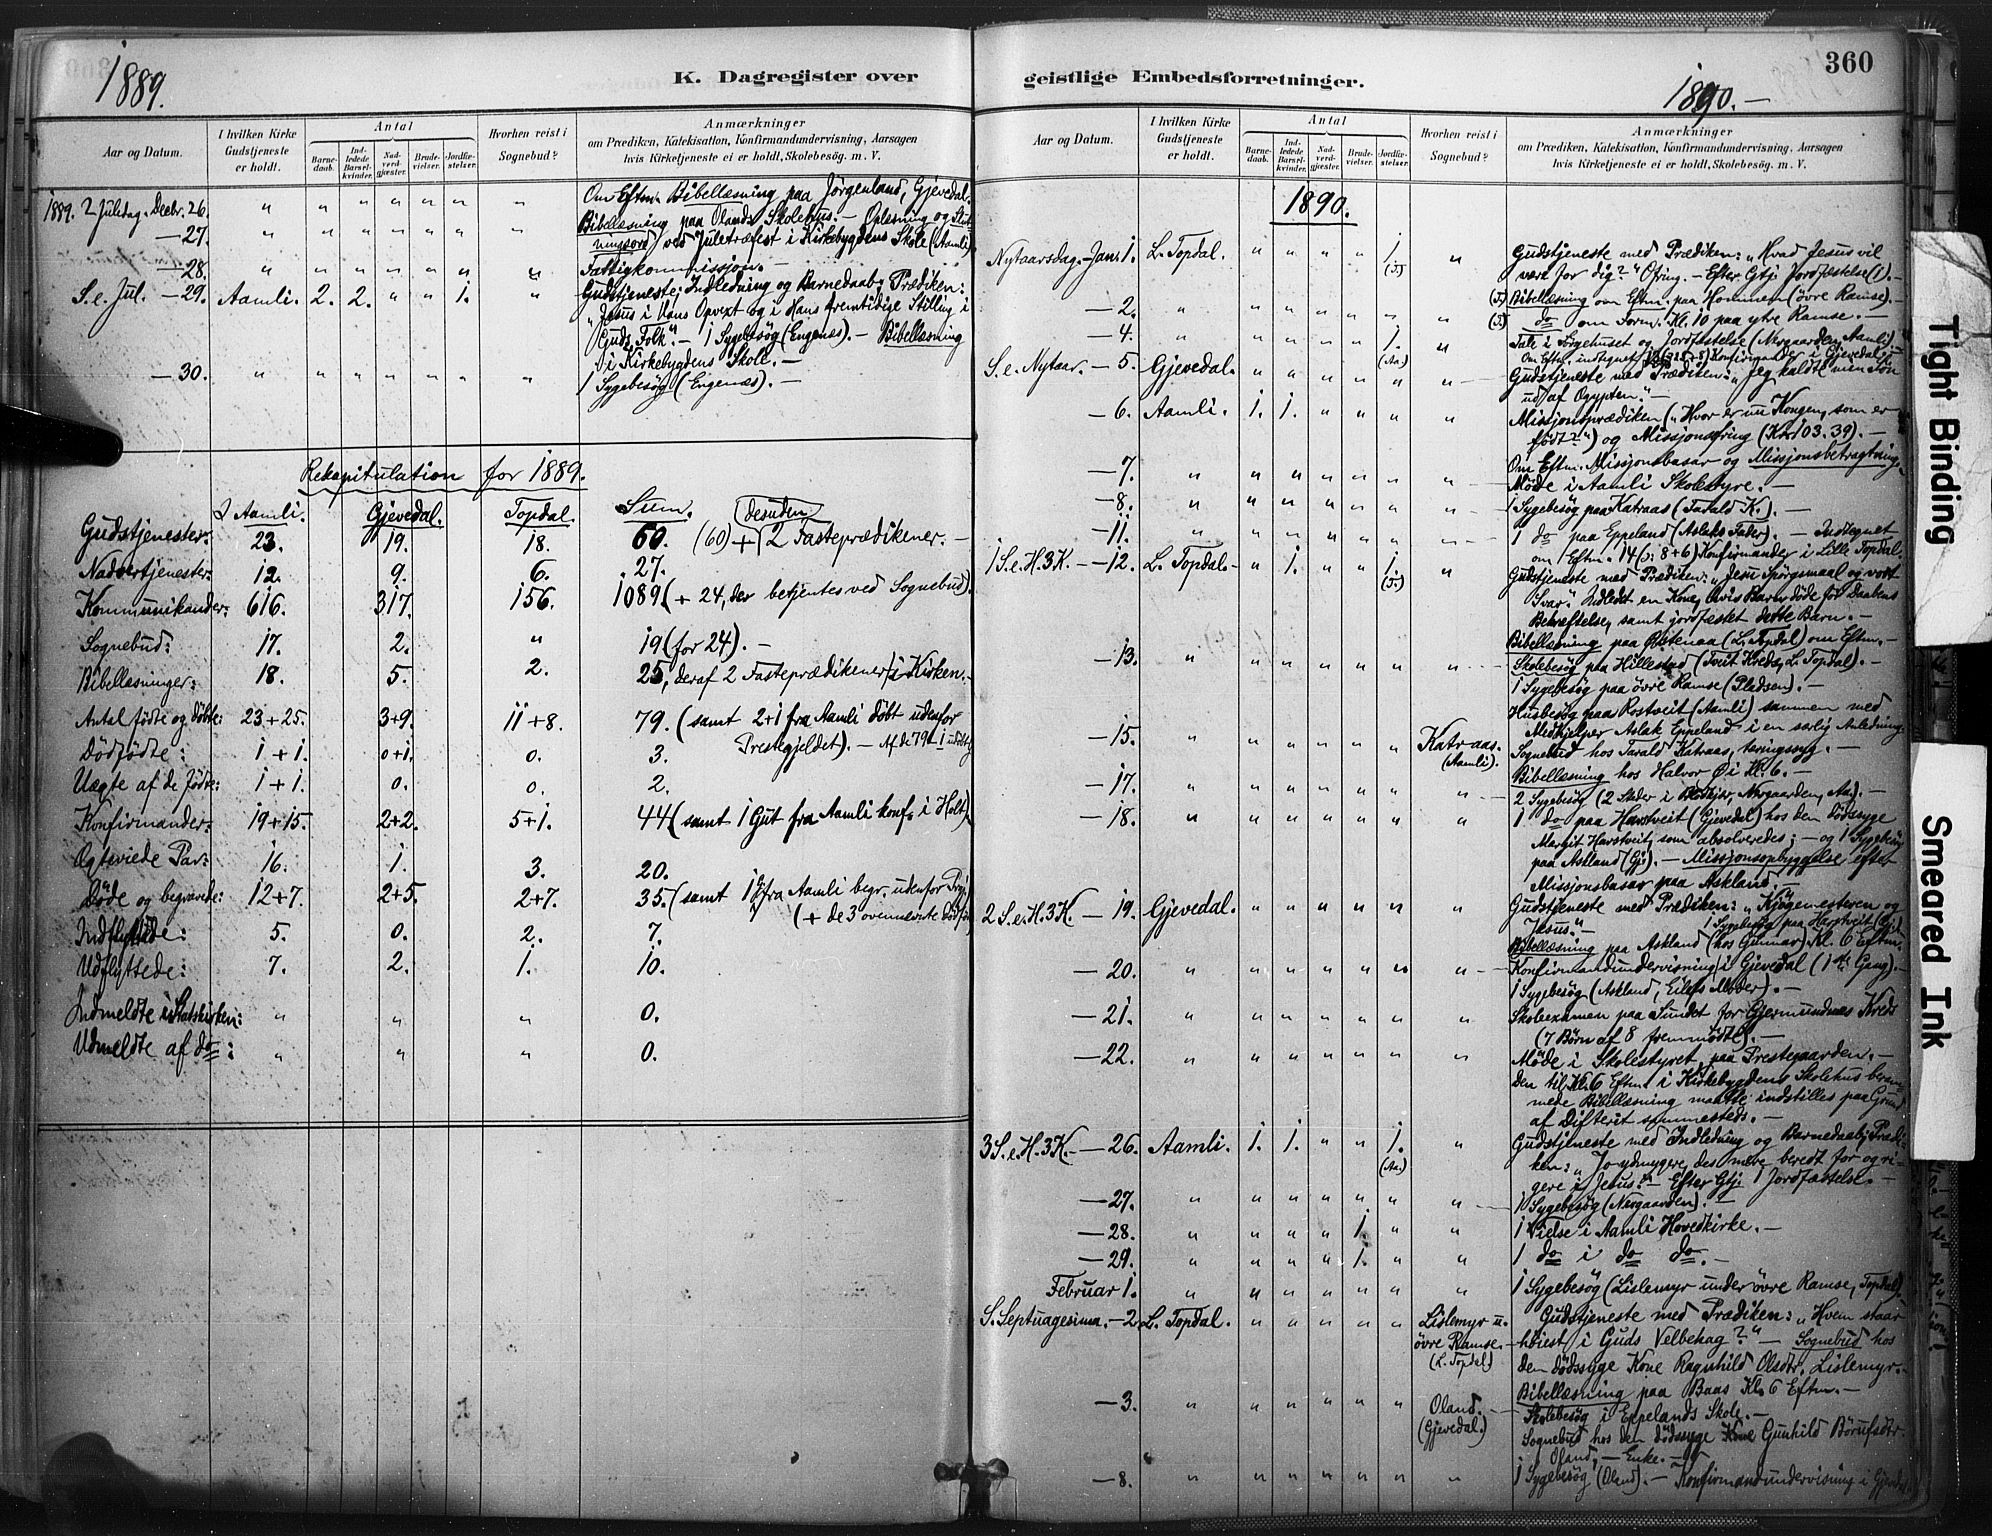 1889.
K. Dagregister over
Aar og Datum.
I hvilken Kirke Gudstjeneste er holdt.
Antal
Barne-daab.
Ind-ledede Barsel-kvinder.
Nad-verd-gjæster.
Brude-vielser.
Jordfæ-stelser.
Hvorhen reist i Sognebud?
Anmærkninger
om Prædiken, Katekisation, Konfirmandundervisning, Aarsagen
hvis Kirketjeneste ei er holdt, Skolebesøg. m. V.
1889. 2 Juledag. Decbr. 26. " " " " " " " Om Eftm. Bibellæsning paa Jørgenland, Gjevedal.
—27. " " " " " " " Bibellæsning paa Olands Skolehus. — Oplæsning og Slut-
ningsord ved Juletræfest i Kirkebygdens Skole (Aamli)
—28. " " " " " " " Fattigkommissjon. —
S. e. Jul. —29. Aamli. 2. 2. " " 1. " Gudstjeneste; Indledning og Barnedaab; Prædiken:
„Jesus i Hans Opvext og i Hans fremtidige Stilling i
Guds Folk". — 1 Sygebesøg (Engenes). — Bibellæsning
i Kirkebygdens Skole. —
—30. " " " " " " " 1 Sygebesøg (Engenæs). —
Rekapitulation for 1889.
I Aamli. Gjevedal. Topdal. Sum. desuden
Gudstjenester: 23. 19. 18. 60. (60) + 2 Fasteprædikener. —
Nadvertjenester: 12. 9. 6. 27.
Kommunikander: 616. 317. 156. 1089 (+ 24, der betjentes ved Sognebud).
Sognebud: 17. 2. " 19 (for 24). —
Bibellæsninger: 18. 5. 2. 25, deraf 2 Fasteprædikener i Kirken. —
Antal fødte og døbte: 23+25. 3+9. 11+8. 79. (samt 2+1 fra Aamli døbt udenfor
Prestegjeldet). — Af de 79
Dødfødte: 1+1. 0+1. 0. 3.
Uægte af de fødte: 1+1. 0. 0. 2.
Konfirmander: 19+15. 2+2. 5+1. 44 (samt 1 Gut fra Aamli konf. i Holt).
Ægteviede Par: 16. 1. 3. 20.
Døde og begravede: 12+7. 2+5. 2+7. 35. (samt 1 fra Aamli begr. udenfor
(+ de 3 ovennævnte
Indflyttede: 5. 0. 2. 7.
Udflyttede: 7. 2. 1. 10.
Indmeldte i Statskirken: " " " 0.
Udmeldte af do: " " " 0.
360
geistlige Embedsforretninger.
1890. —
Aar og Datum.
I hvilken Kirke Gudstjeneste er holdt.
Antal
Barne-daab.
Ind-ledede Barsel-kvinder.
Nad-verd-gjæster.
Brude-vielser.
Jordfæ-stelser.
Hvorhen reist i Sognebud?
Anmærkninger
om Prædiken, Katekisation, Konfirmandundervisning, Aarsagen
hvis Kirketjeneste ei er holdt, Skolebesøg. m. V.
1890.
Nytaarsdag. — Jan. 1. L. Topdal. " " " " 1. (T.) " Gudstjeneste med Prædiken: „Hvad Jesus vil
være for dig?" Ofring. — Efter Gtj. Jordfæstelse (1). —
—2. " " " " " " (T.) Bibellæsning om Eftm. paa Hommen (øvre Ramse). —
(T.) do om Form. Kl. 10 paa ytre Ramse. —
—4. " " " " " 1. (Aa.) " Tale i Sørgehuset og Jordfæstelse (Nersgaarden, Aamli).
Om Eftm. indtegnet Konfirmander i Gjevedal.
S. e. Nytaar. — 5. Gjevedal. " " " " " " Gudstjeneste med Prædiken: „Jeg kaldte min Søn
ud af Ægypten." —
—6. Aamli. 1. 1. " " " " Missjonsprædiken („Hvor er nu Kongen, som er
født?") og Missjonsofring (Kr. 103.39). —
—7. " " " " " " " Om Eftm. Missjonsbasar og Missjonsbetragtning.
Møde i Aamli Skolestyre. —
—8. " " " " " " " 1 Sygebesøg paa Katraas (Tarald K.). —
—11. " " " " " " " 1 do paa Eppeland (Aslaks Fader). — Indtegnet
om Eftm. 14 (ɔ: 8+6) Konfirmander i Lille Topdal.
1 S. e. H. 3 K. — 12. L. Topdal. " 1. " " 1. (T.) " Gudstjeneste med Prædiken: „Jesu Spørgsmaal og vort
Svar". Indledet en Kone, hvis Barn døde før Daabens
Bekræftelse, samt jordfæstet dette Barn. —
Bibellæsning paa Østenaa (L. Topdal) om Eftm. —
—13. " " " " " " " Skolebesøg paa Hillestad (Tveit Kreds, L. Topdal). —
1 Sygebesøg paa øvre Ramse (Pladsen). —
Husbesøg paa Rostveit (Aamli) sammen med
Medhjelper Aslak Eppeland i en særlig Anledning.
—15. " " " " " " Katraas. (Aamli). Sognebud hos Tarald Katraas, tæringssyg. —
Bibellæsning hos Halvor Ø i Kl. 6. —
—17. " " " " " " " 2 Sygebesøg (2 Steder i Nersgaarden, Aa.). —
—18. " " " " " " " 1 do paa Harstveit (Gjevedal) hos den dødssyge
Margit Harstveit, som absolveredes; — og 1 Sygebesøg
paa Askland (Gj.). — Missjonsopbyggelse efter
Missjonsbasar paa Askland. —
2 S. e. H. 3 K. — 19. Gjevedal. " " " " " " Gudstjeneste med Prædiken: „Kjøgemesteren og
Jesus." — 1 Sygebesøg paa Harstveit (Gj.)
Bibellæsning paa Askland (hos Gunnar) Kl. 6 Eftm. —
—20. " " " " " " " Konfirmandundervisning i Gjevedal (1ste Gang). —
1 Sygebesøg (Askland, Eilefs Moder). —
—21. " " " " " " " Skoleexamen paa Sundet for Gjermundnes Kreds
(7 Børn af 8 fremmødte). —
—22. " " " " " " " Møde i Skolestyret paa Prestegaarden. —
Den til Kl. 6 Eftm. i Kirkebygdens Skolehus beram-
mede Bibellæsning maatte indstilles paa Grund
af Difterit sammesteds. —
3 S. e. H. 3 K. — 26. Aamli. 1. 1. " " 1. (Aa.) " Gudstjeneste med Indledning og Barnedaab; Prædi-
ken: „Jo ydmygere, des mere beredt for og ri-
gere i Jesus." — Efter Gtj. 1 Jordfæstelse. —
—27. " " " " " " " 1 Sygebesøg (Nersgaarden). —
—28. " " " " 1. " " 1 Vielse i Aamli Hovedkirke. —
—29. " " " " 1. " " 1 do i do do. —
Februar 1. " " " " " " " 1 Sygebesøg (Lislemyr under øvre Ramse, Topdal).
S. Septuagesima. — 2. L. Topdal. " " " " " Lislemyr u. øvre Ramse. (L. Topdal) Gudstjeneste med Prædiken: „Hvem staar
høiest i Guds Velbehag?" — Sognebud hos
den dødssyge Kone Ragnhild Olsdtr. Lislemyr. —
Bibellæsning paa Baas Kl. 6 Eftm. —
—3. " " " " " " Oland. (Gjevedal.) Skolebesøg i Eppelands Skole. —
Sognebud hos den dødssyge Gunhild Børufsdtr.
Oland, — Enke. —
—8. " " " " " " " 1 Sygebesøg (Oland). — Konfirmandundervisning i Gjevedal
Tight Binding
Smeared Ink